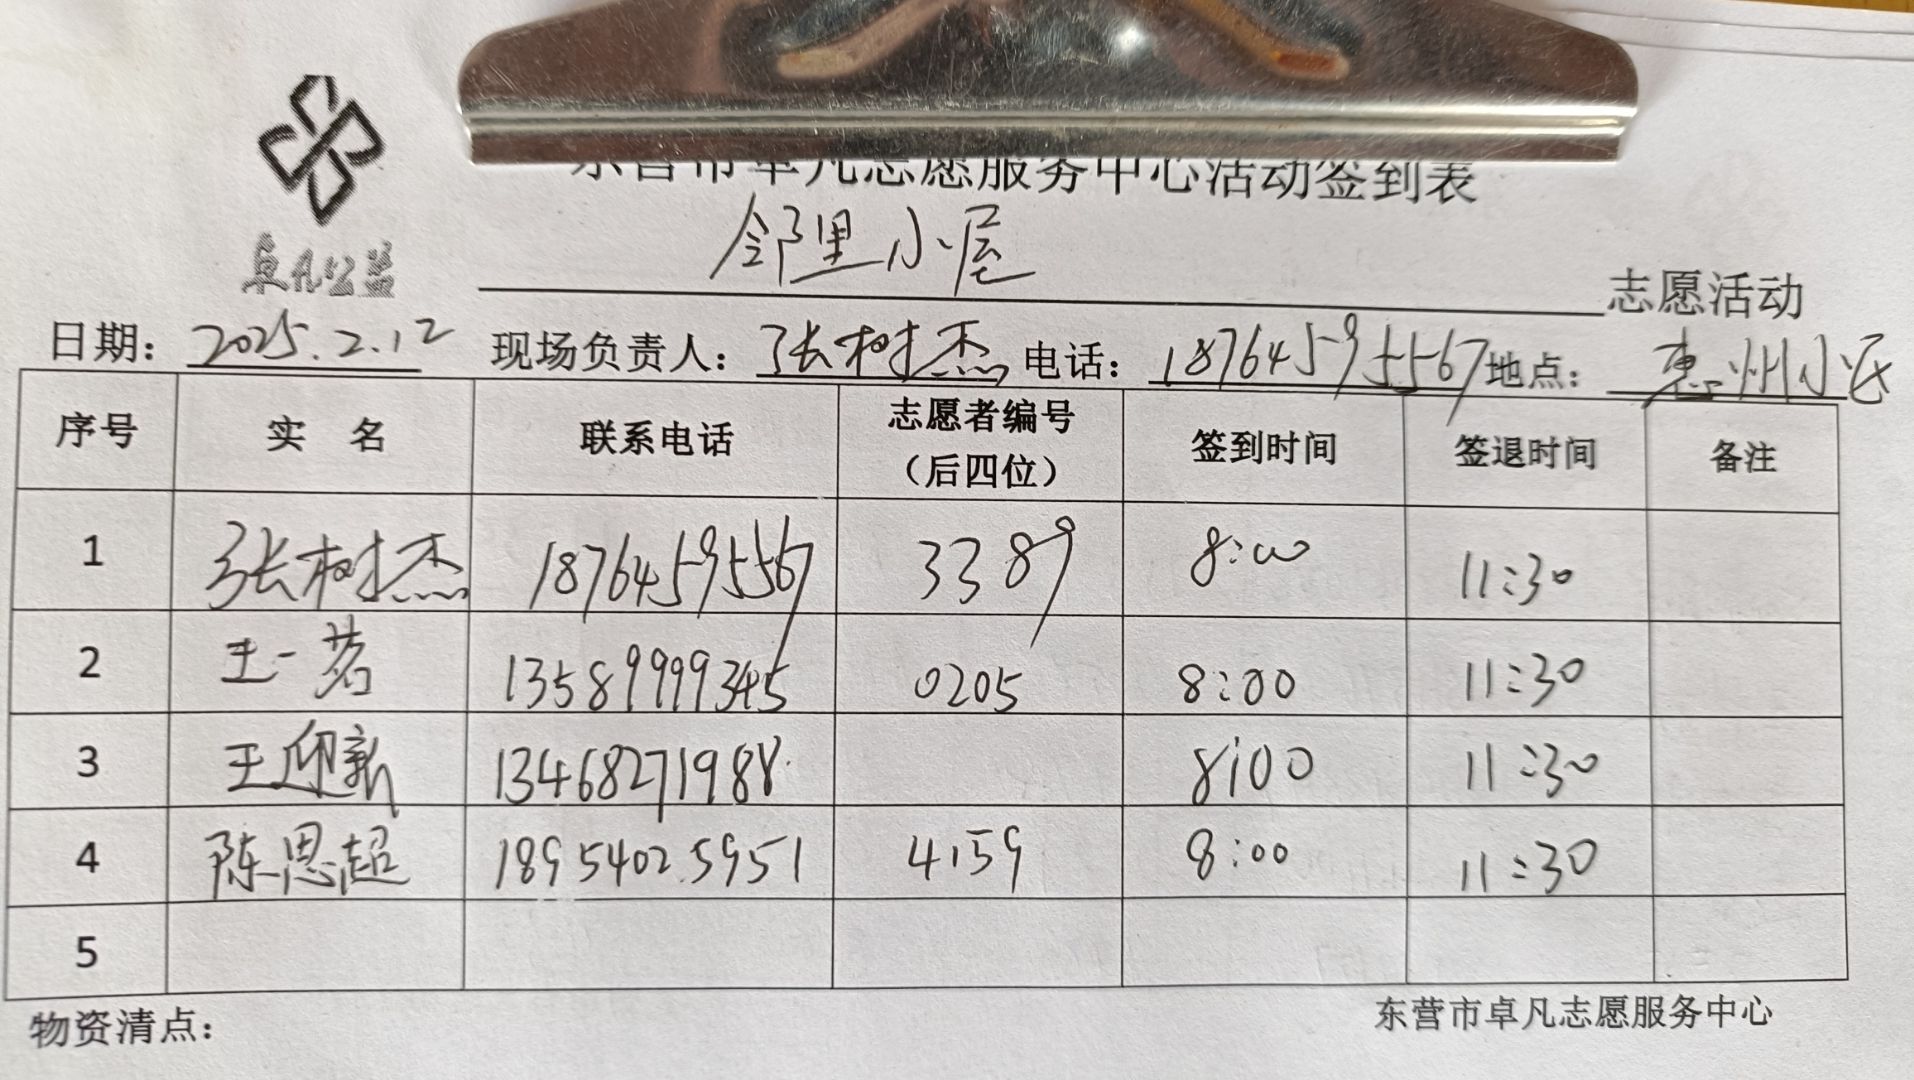 东营市卓凡志愿服务中心活动签到表
卓凡公益
邻里小屋 志愿活动
日期：2025.2.12 现场负责人：张树杰 电话：18764595567 地点：惠州小区
序号 实 名 联系电话 志愿者编号（后四位） 签到时间 签退时间 备注
1 张树杰 18764595567 3389 8:00 11:30
2 王一茗 13589999345 0205 8:00 11:30
3 王迎新 13468271988 8:00 11:30
4 陈思超 18954025951 4159 8:00 11:30
5
物资清点： 东营市卓凡志愿服务中心